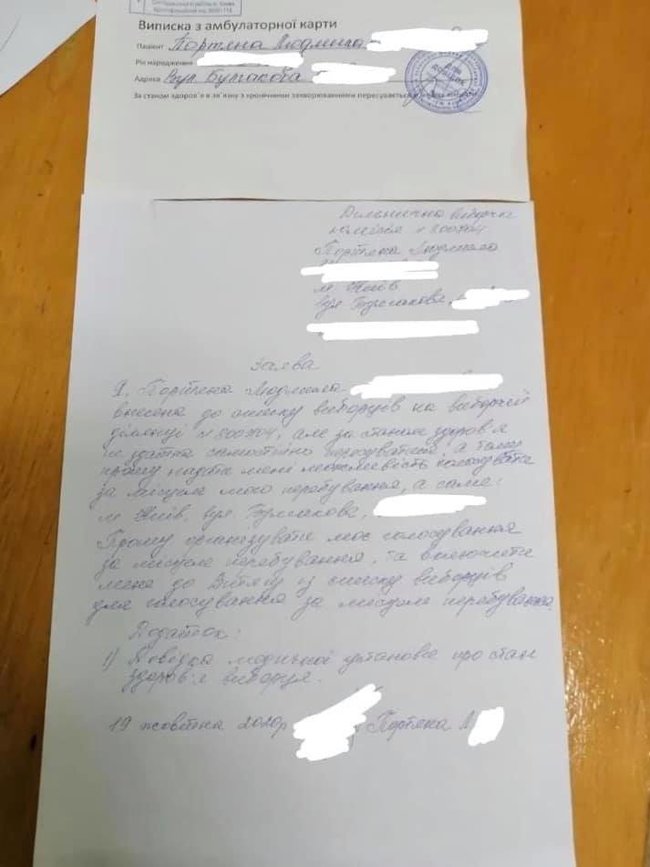 Виписка з амбулаторної карти
Пацієнт Портяна Людмила
Рік народження
Адреса вул Булгакова
За станом здоров'я в зв'язку з хронічними захворюваннями пересувається
Дільнична виборча
комісія №800704
Портяна Людмила
м Київ
вул Булгакова,
Заява
Я, Портяна Людмила
внесена до списку виборців на виборчій
дільниці №800704, але за станом здоров'я
не здатна самостійно пересуватися, а тому
прошу надати мені можливість голосувати
за місцем мого перебування, а саме:
м Київ, вул. Булгакова,
Прошу організувати моє голосування
за місцем перебування, та включити
мене до Витягу із списку виборців
для голосування за місцем перебування.
Додаток:
1) Довідка медичної установи про стан
здоров'я виборця.
19 жовтня 2020р Портяна Л